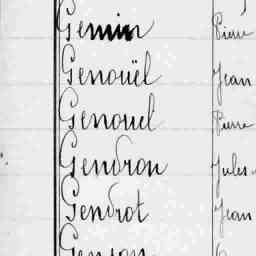 Gemin Pierre
Genouël Jean
Genouel Pierre
Gendron Jules
Gendrot Jean
Genson